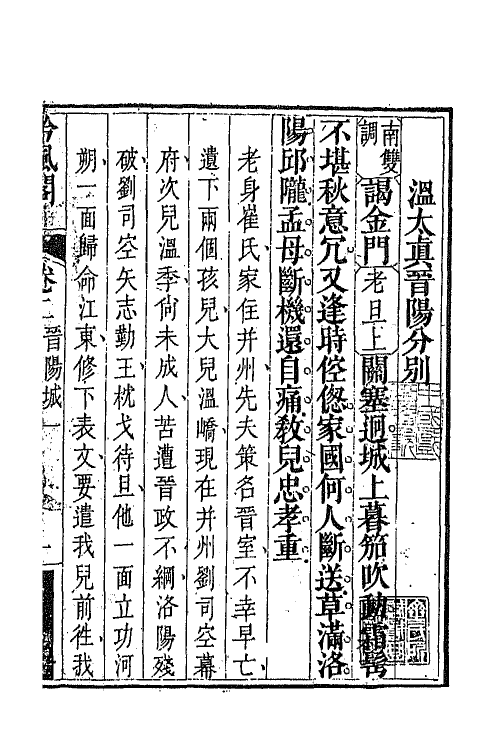 溫太真晉陽分別
南雙調 謁金門 老旦上 關塞迥城上暮笳吹動霜髩
不堪秋意冗又逢時倥偬家國何人斷送草滿洛
陽邱隴孟母斷機還自痛教兒忠孝重
老身崔氏家住并州先夫策名晉室不幸早亡
遺下兩個孩兒大兒溫嶠現在并州劉司空幕
府次兒溫季尙未成人苦遭晉政不綱洛陽殘
破劉司空矢志勤王枕戈待旦他一面立功河
朔一面歸命江東修下表文要遣我兒前徃我
吟風閣 卷二 晉陽城 一